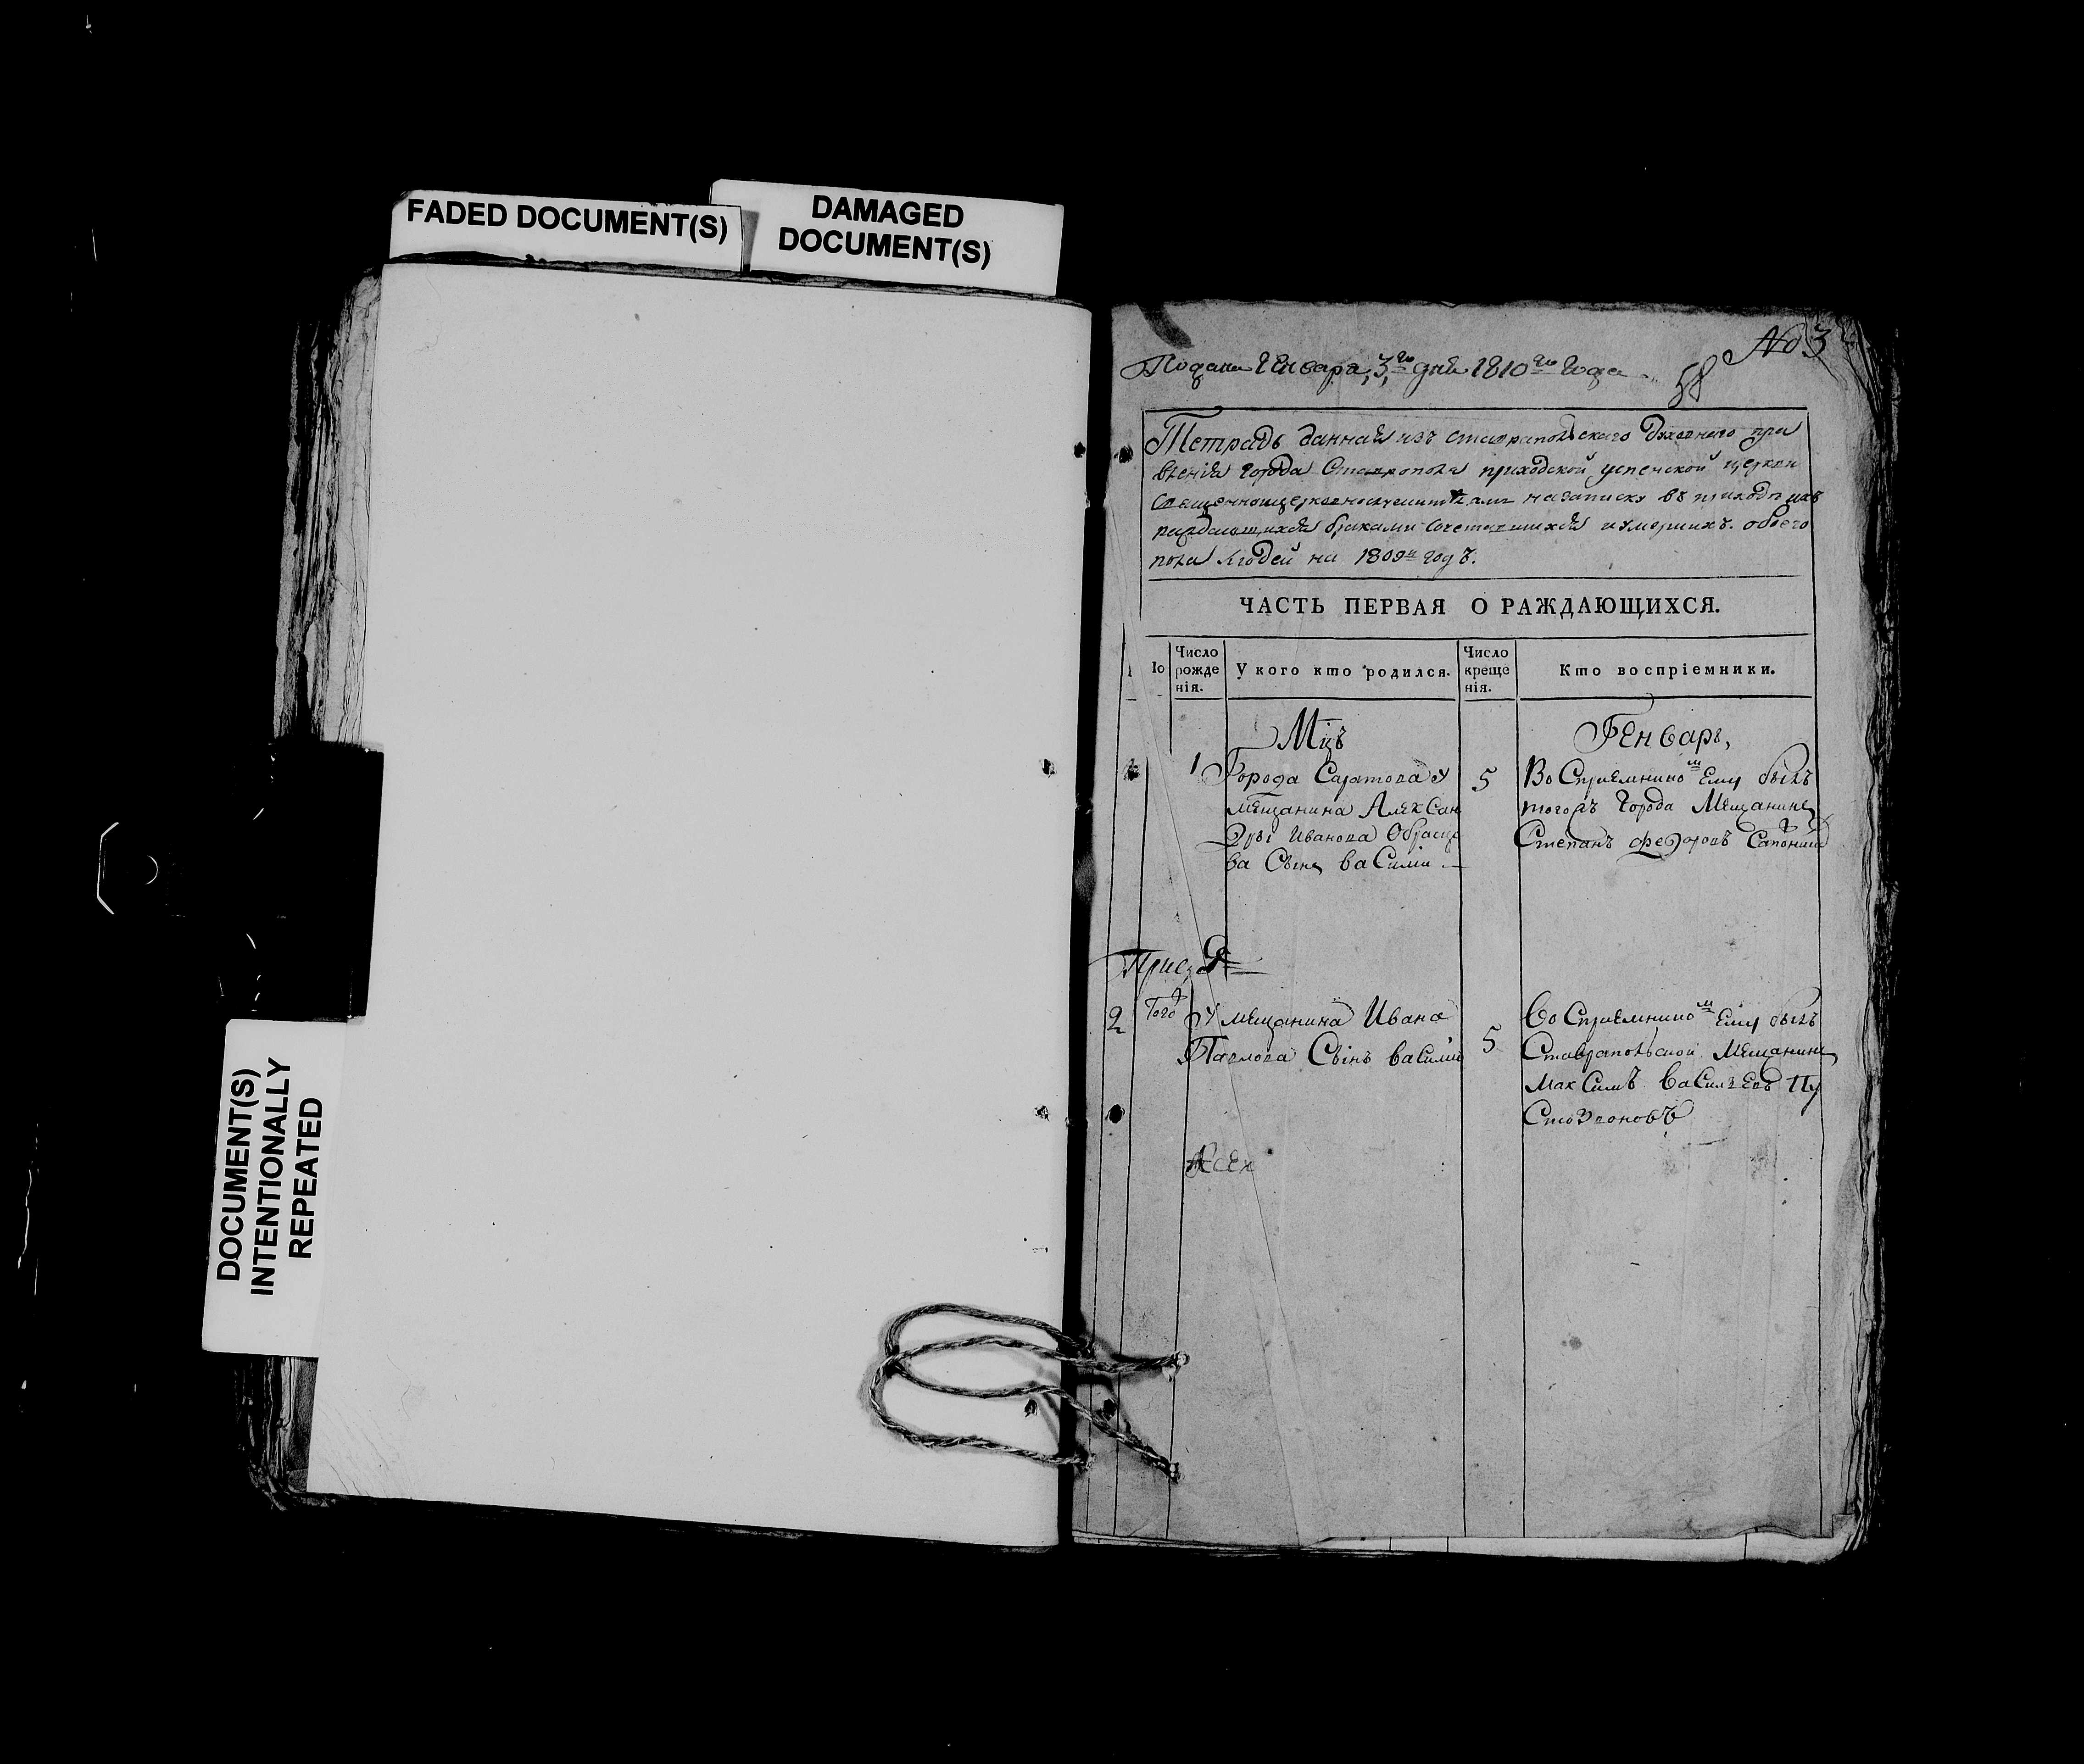 FADED DOCUMENT(S)
DAMAGED
DOCUMENT(S)
DOCUMENT(S)
INTENTIONALLY
REPEATED
№ 3
Подана Генваря 3го дня 1810го года
58
Тетрадь данная изъ ставропольскаго духовнаго пра
вленія города Ставрополя приходской успенской церкви
священноцерковнослужителямъ на записку въ приходѣ ихъ
раждающихся браками сочетавшихся и умершихъ обоего
пола людей на 1809й годъ.
ЧАСТЬ ПЕРВАЯ О РАЖДАЮЩИХСЯ.
Число
рожде
нія.
У кого кто родился.
Число
креще
нія.
Кто воспріемники.
Мцъ
Генварь,
1
Города Саратова у
мещанина Алексан
дры Иванова Образцо
ва Сынъ василии
5
Восприемникомъ Ему былъ
тогожъ города Мещанинъ
Степанъ федоровъ
2
Того
у мещанина Ивана
Павлова Сынъ василии
5
Восприемникомъ Ему былъ
Ставропольской Мещанинъ
максимъ васильевъ Пу